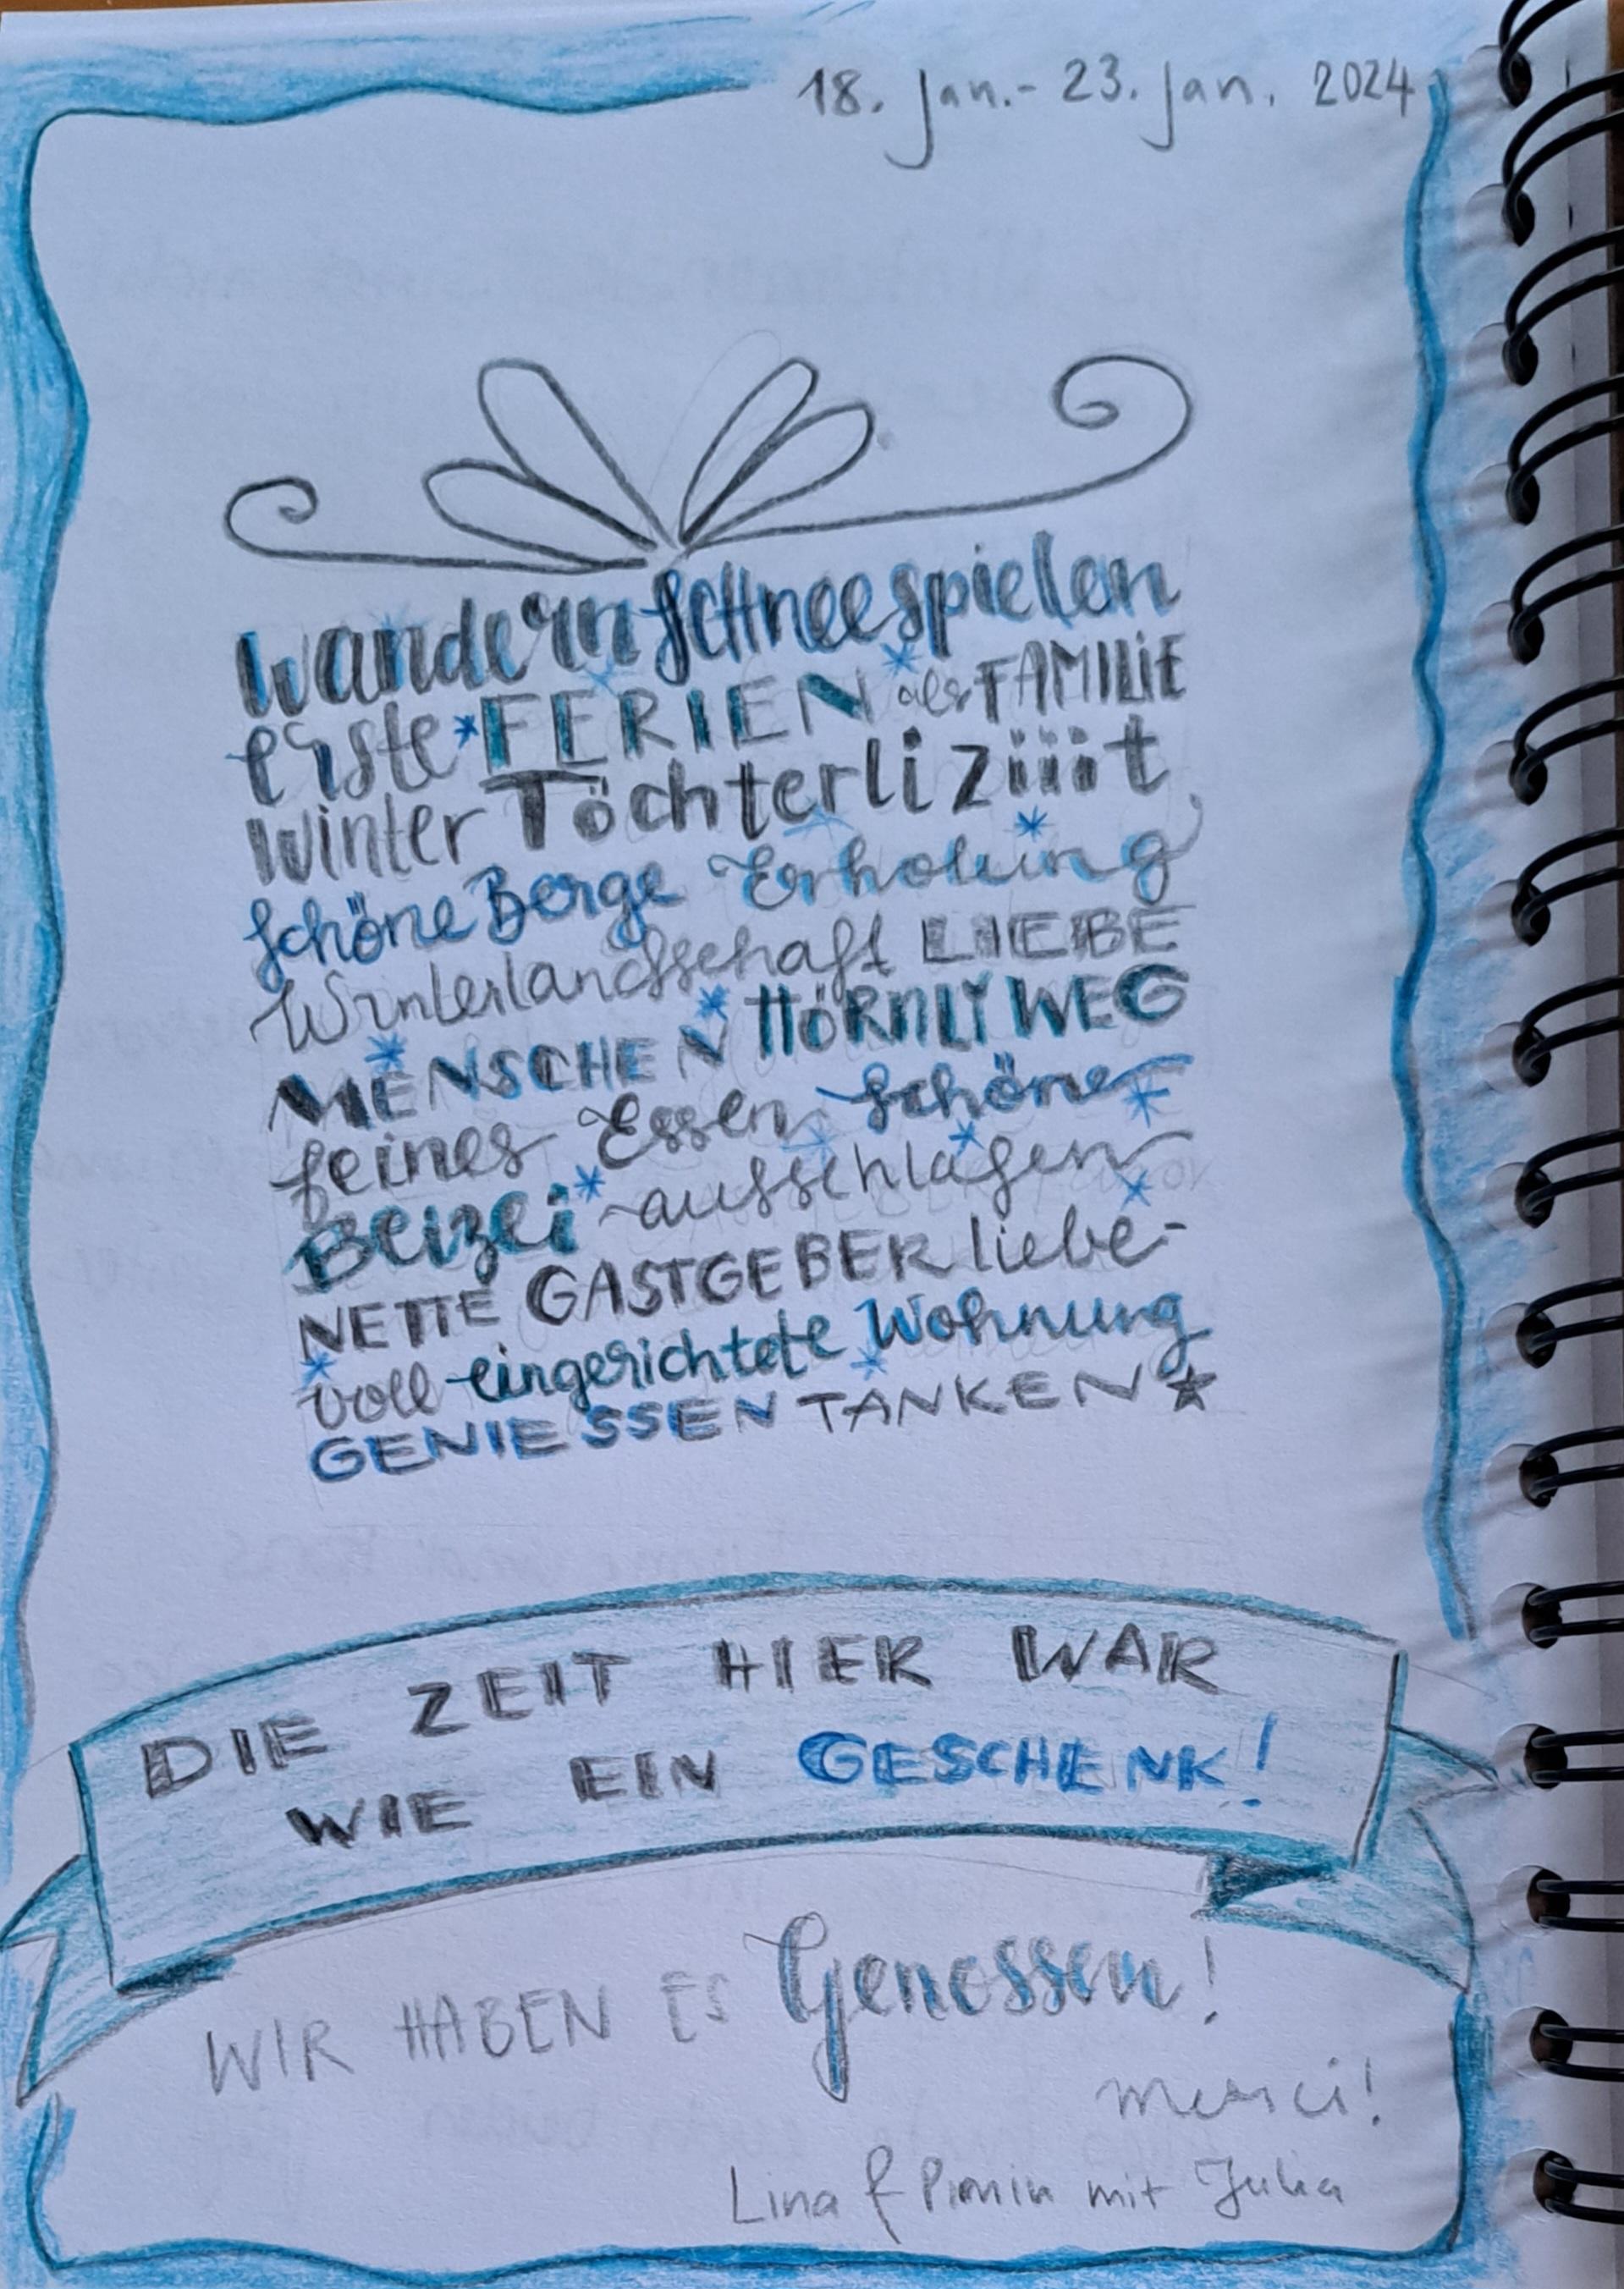 18. Jan. - 23. Jan. 2024
Wandern Schneespielen
erste FERIEN als FAMILIE
Winter Töchterli Ziiit
schöne Berge Erholung
Winterlandschaft LIEBE
MENSCHEN HÖRNLI WEG
feines Essen schöne
Beizli ausschlafen
NETTE GASTGEBER liebe-
voll eingerichtete Wohnung
GENIESSEN TANKEN
DIE ZEIT HIER WAR
WIE EIN GESCHENK!
WIR HABEN ES Genossen!
Merci!
Lina & Pirmin mit Julia